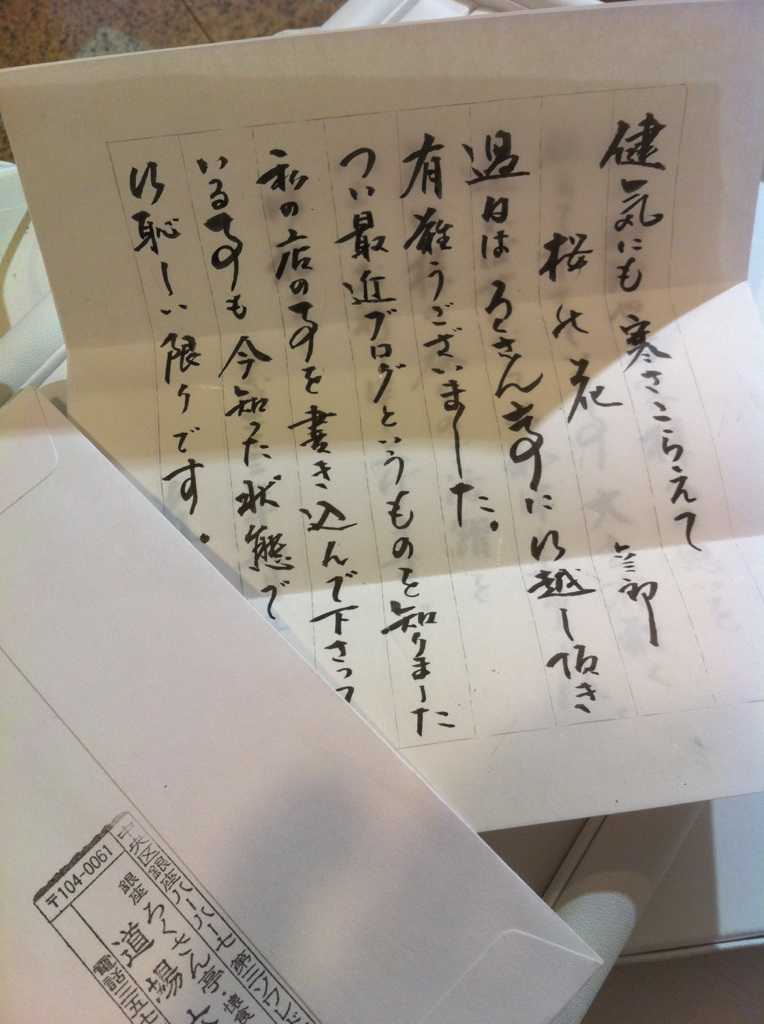 健気にも寒さこらえて
桜の花 六三郎
過日はろくさん亭に御越し頂き
有難うございました。
つい最近ブログというものを知りました
私の店の事を書き込んで下さって
いる事も今知った状態で
御恥しい限りです。
〒104-0061
中央区銀座八-八-七 第三
銀座 ろくさん亭・懐食
道場
電話三五七